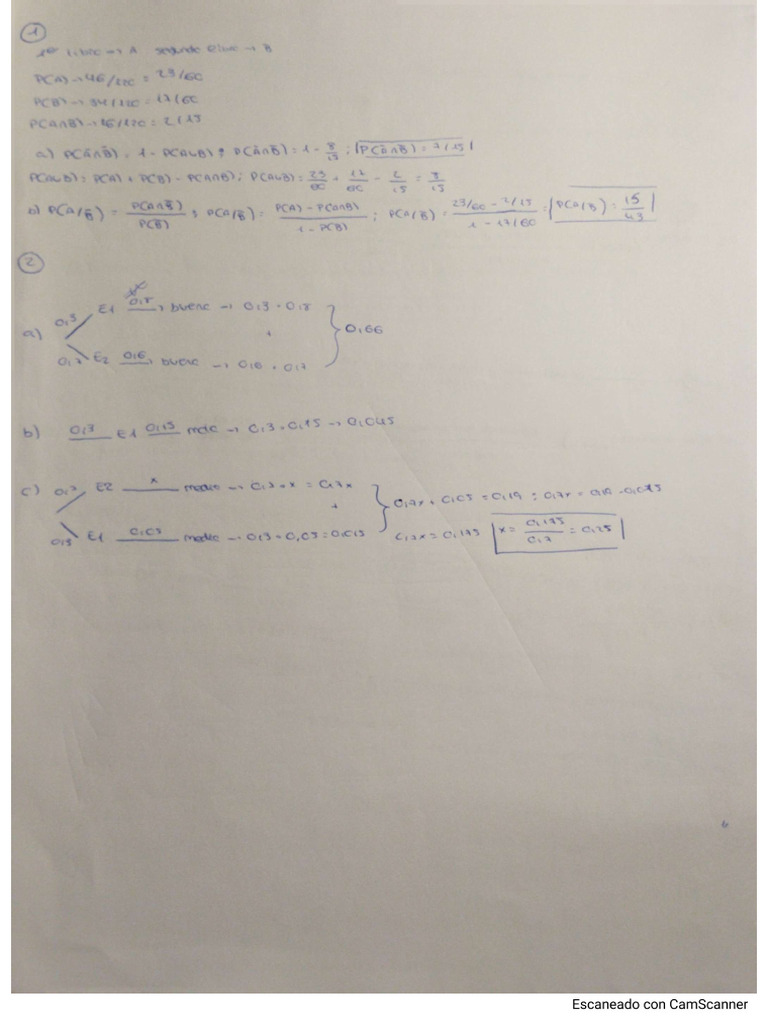 1
1er libro → A segundo libro → B
P(A) → 46/120 = 23/60
P(B) → 34/120 = 17/60
P(A∩B) → 16/120 = 2/15
a) P(Ā∩B̄) = 1 - P(A∪B) ; P(Ā∩B̄) = 1 - 8/15 ; P(Ā∩B̄) = 7/15
P(A∪B) = P(A) + P(B) - P(A∩B) ; P(A∪B) = 23/60 + 17/60 - 2/15 = 8/15
b) P(A/B̄) = P(A∩B̄)/P(B̄) ; P(A/B̄) = P(A) - P(A∩B)/1 - P(B) ; P(A/B̄) = 23/60 - 2/15/1 - 17/60 = P(A/B̄) = 15/43
2
0,3 E1 0,8 bueno → 0,3 · 0,8
a) + 0,66
0,7 E2 0,6 bueno → 0,6 · 0,7
b) 0,3 E1 0,15 malo → 0,3 · 0,15 → 0,045
c) 0,7 E2 x medio → · x = 0,7x
+
0,3 E1 0,05 medio → 0,3 · 0,05 = 0,015
0,7x = 0,175 x = 0,175/0,7 = 0,25
Escaneado con CamScanner